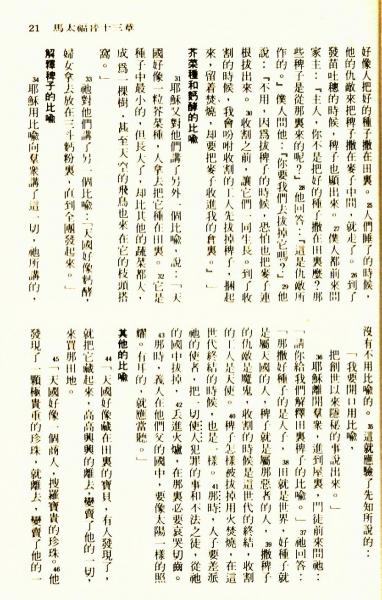 21 馬太福音第十三章
好像人把好的種子撒在田裏。25人們睡了的時候，
他的仇敵來把稗子撒在麥子中間，就走了。26到了
發苗吐穗的時候，稗子也顯出來。27僕人都前來問
家主：『主人，你不是把好的種子撒在田裏麼？那
些稗子是從那裏來的呢？』28他回答：『這是仇敵所
作的。』僕人問他：『你要我們去拔掉它嗎？』29他
說：『不用，因爲拔稗子的時候，恐怕也把麥子連
根拔出來。30收割之前，讓它們一同生長。到了收
割的時候，我會吩咐收割的工人先拔掉稗子，捆起
來，留着焚燒，却要把麥子收進我的倉裏。』」
芥菜種和麪酵的比喩
31耶穌又對他們講了另外一個比喩，說：「天
國好像一粒芥菜種，人拿去把它種在田裏。32它是
種子中最小的，但長大了，却比其他的蔬菜都大，
成爲一棵樹，甚至天空的飛鳥也來在它的枝頭搭
窩。」
33祂對他們講了另一個比喩：「天國好像麪酵，
婦女拿去放在三斗麪粉裏，直到全團發起來。」
解釋稗子的比喩
34耶穌用比喩向羣衆講了這一切，祂所講的，
沒有不用比喩的。35這就應驗了先知所說的：
「我要開口用比喩，
把創世以來隱秘的事說出來。」
36耶穌離開羣衆，進到房子裏，門徒前來問祂：
「請你給我們解釋田裏稗子的比喩。」37祂回答：
「那撒好種子的是人子，38田就是世界，好種子就
是屬天國的人，稗子就是屬那惡者的人，39撒稗子
的仇敵是魔鬼，收割的時候是這世代的終結，收割
的工人是天使。40稗子怎樣被拔掉用火焚燒，在這
世代終結的時候，也是一樣。41那時，人子要差派
祂的使者，把一切使人犯罪的事和不法之徒，從祂
的國中拔掉，42丟進火爐，在那裏必要哀哭切齒。
43那時，義人在他們父的國中，要像太陽一樣的照
耀。有耳的，就應當聽。」
其他的比喩
44「天國好像藏在田裏的寶貝，有人發現了，
就把它藏起來，高高興興的離去，變賣了他的一切，
來買那田地。
45「天國好像一個商人，搜羅寶貴的珍珠。46他
發現了一顆極貴重的珍珠，就離去，變賣了他的一